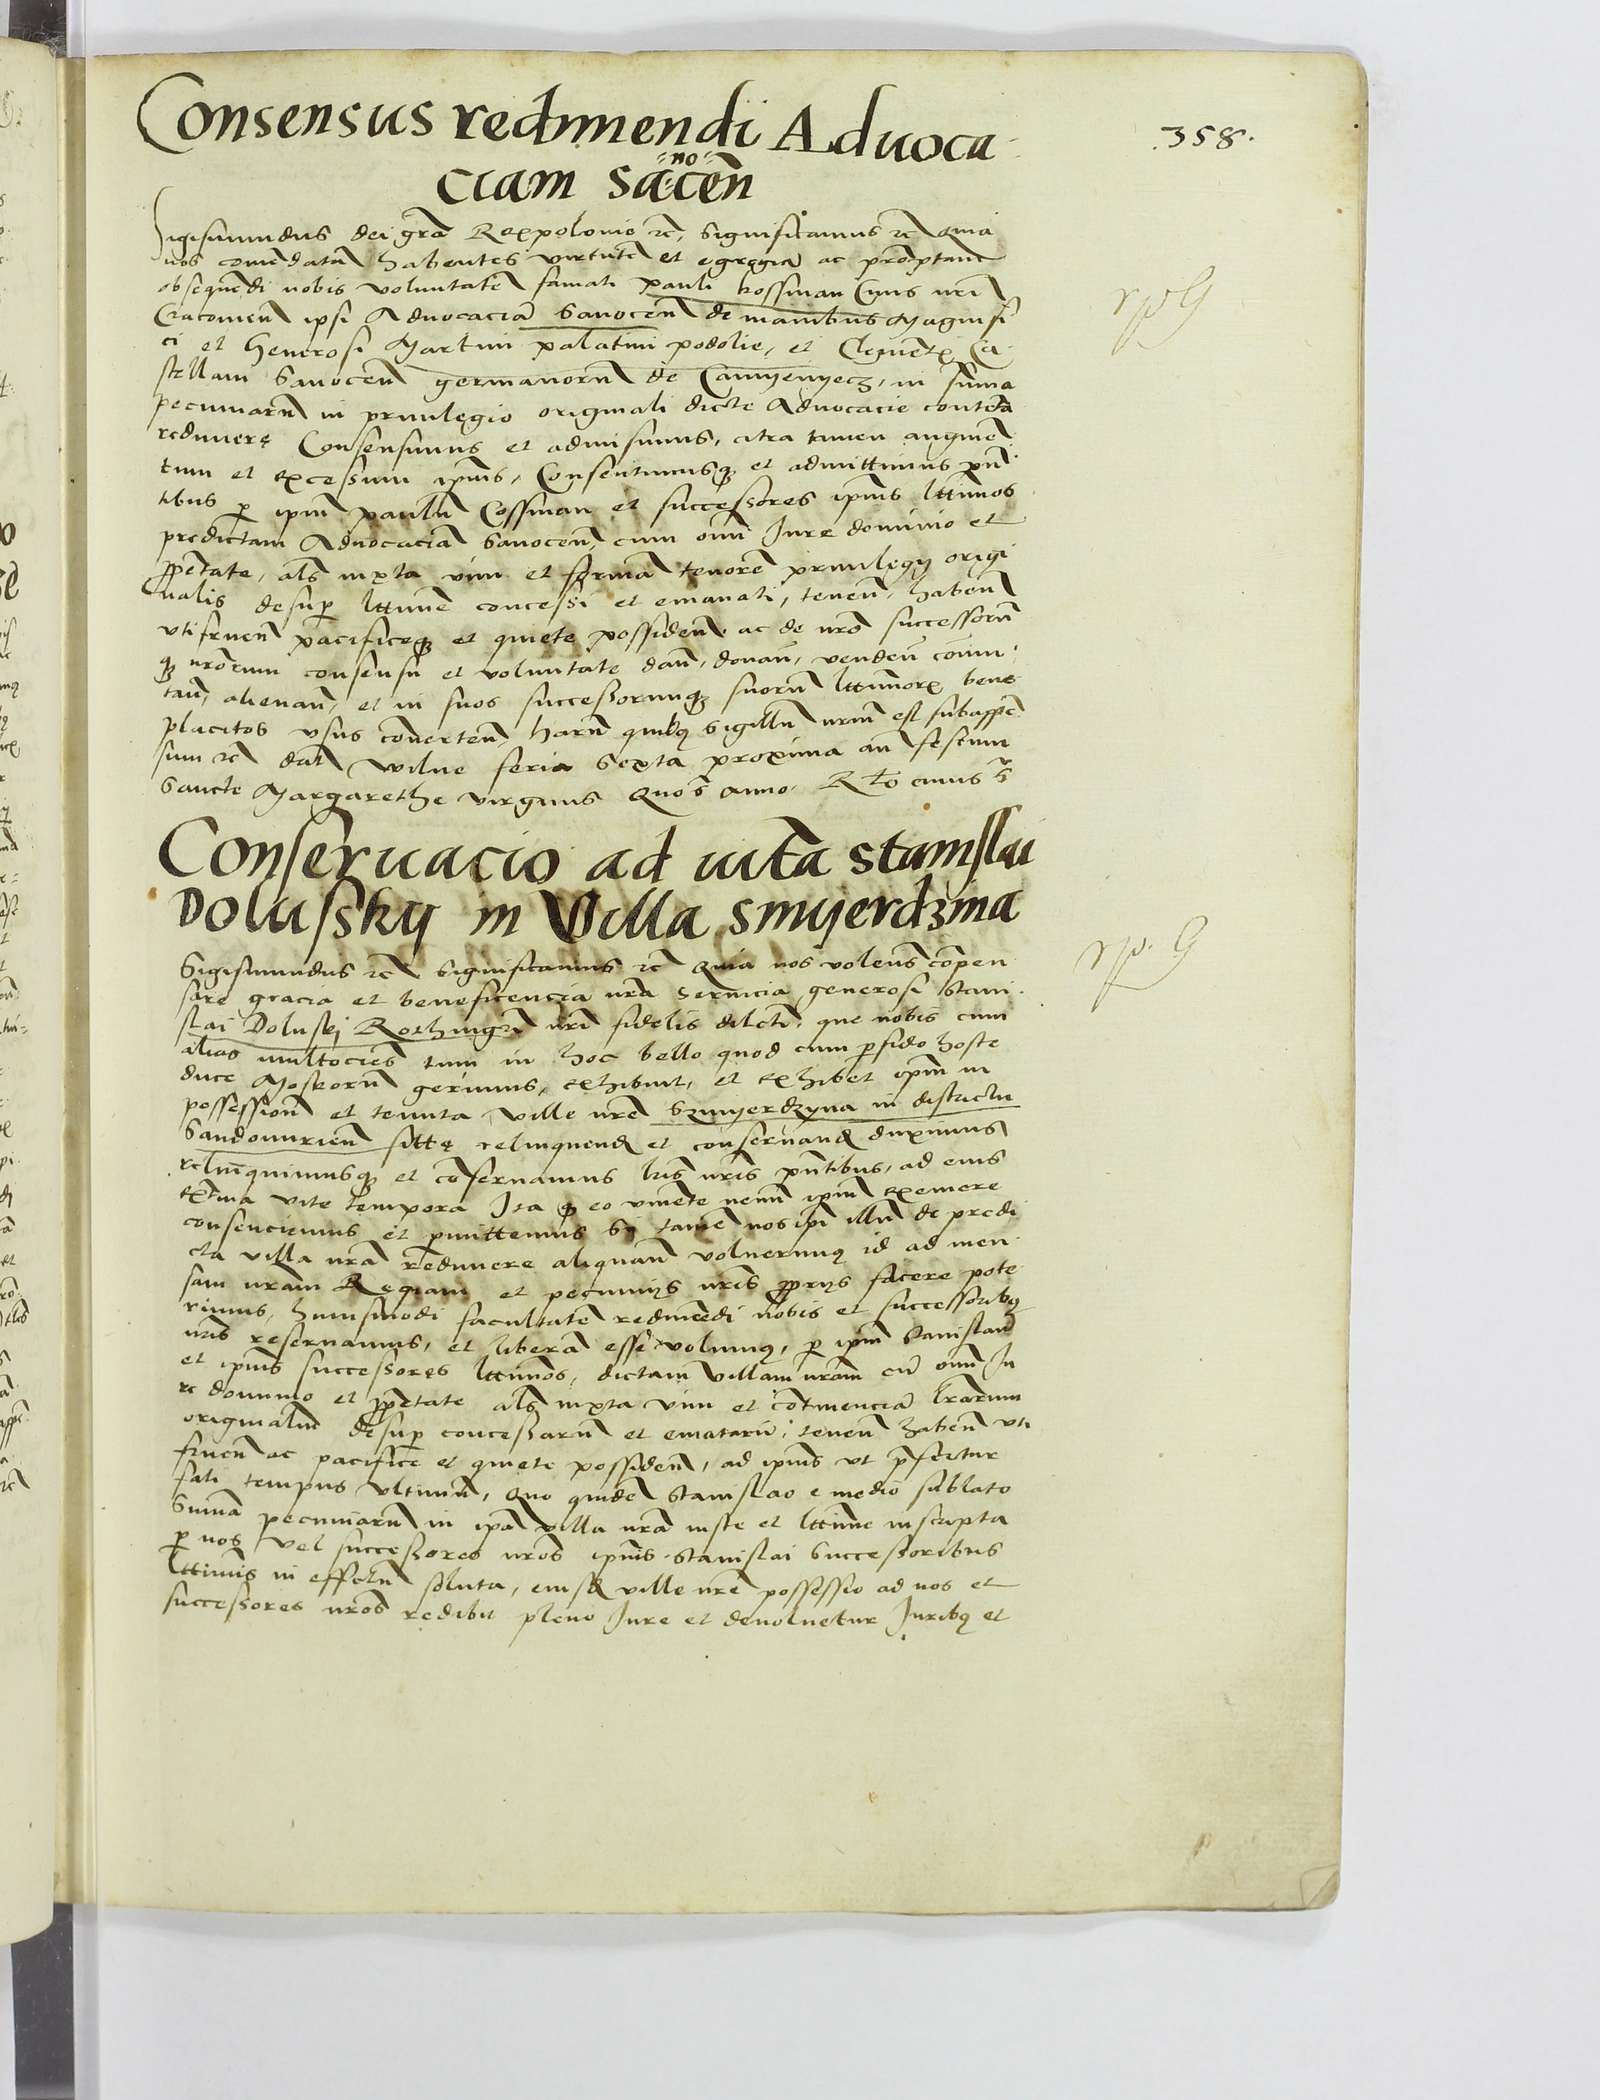 Consensus redimendi Aduoca
358.
no
ciam sacen̄
Sigismundus dei gr̄a Rex polonie rc̄, Significamus rc̄ Quia
nos comēdatā habentes virtutē et egregiā ac promptam
obsequendi nobis voluntatē famati pauli kossman Ciuis nr̄i
Cracouien̄ ipsi Aduocaciā Sanocen̄ de manibus Magnifi
ci et Generosi Martini palatini podolie, et Clementis Ca
stellani Sanocen̄ germanorū de Camyenyecz, in sūma
pecuniarū in priuilegio originali dicte Aduocacie contēta
redimere Consensimus et admisimus, citra tamen augmē
tum et excessum ipius, Consentimusq₃ et admittimus pn̄
tibus p ipm̄ paulū Cossman et successores ipius lttimos
predictam Aduocaciā Sanocen̄, cum omī Jure dominio et
ppetate, als̄ iuxta vim et formā tenorē priuilegij origi
nalis desup lttime concessi et emanati, tenen̄, haben̄
vtifruen̄ pacificeq₃ et quiete possiden̄, ac de nr̄o successorū
q₃ nr̄orum consensu et voluntate dan̄, donan̄, venden̄ comu
tan̄, alienan̄, et in suos successorumq₃ suorū lttimorꝝ bene
placitos vsus conuerten̄, harū quibꝯ sigillū nr̄m est subappē
sum rc̄ dat̄ wilne feria Sexta proxima an̄ festum
Sancte Margarethe virginis Quo s̄ anno. Rto cuius s̄
Conseruacio ad uitā stanislai
Dolussky in Villa smyerdzina
rp. G
Sigismundus rc̄ Significamus rc̄ Quia nos volens̄ compen
sare gracia et beneficencia nr̄a seruicia generosi Stani
slai Doluskj Rothmgr̄i nr̄i fidelis dilcti, que nobis cum
alias multocies̄ tum in hoc bello quod cum pfido hoste
duce Moskorū gerimus, exhibuit, et exhibet ipm̄ in
possession̄ et tenuta ville nr̄e Szmyerdzyna in districtu
Sandomirien̄ sitte relinquend et conseruand duximus
relinquimusq₃ et conseruamus lr̄is nr̄is pn̄tibus, ad eius
extrēa vite tempora Ita q₃ eo viuēte nemī ipm̄ exemere
consenciemus et pmittemus Si tamē nos ipi illū de predi
cta villa nr̄a redimere aliquan̄ voluerimꝯ id ad men
sam nr̄am Regiam et pecunijs nr̄is pprijs facere pote
rimus, huiusmodi facultatē redimēdi nobis et successoribꝯ
nr̄is reseruamus, et liberā esse volumꝯ, p ipm̄ Stanislaū
et ipius successores lttimos, dictam villam nr̄am cū omī Ju
re dominio et ppetate als̄ iuxta vim et cōtinenciā lr̄arum
originaliū desup concessarū et ematarū, tenen̄ haben̄ vti
fruen̄ ac pacifice et quiete possiden̄, ad ipius vt pfertur
fati tempus vltimū, Quo quidē Stanislao e medio sublato
Sūma pecuniarū in ipa villa nr̄a iuste et lttime inscripta
p nos vel successores nr̄os ipius Stanislai Successoribus
lttimis in effctū soluta, eiusd ville nr̄e possessio ad nos et
successores nr̄os redibit pleno Jure et deuoluetur Juribꝯ et